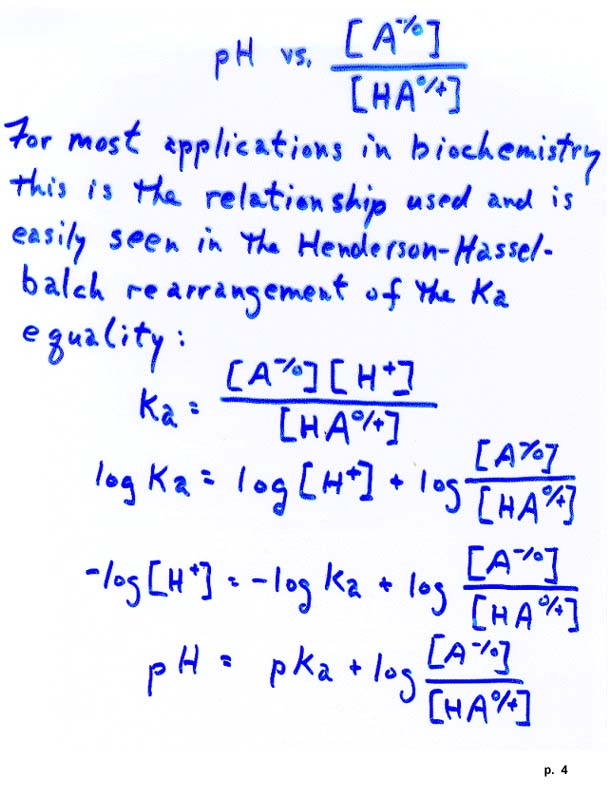 pH vs. [A⁻/⁰] / [HA⁰/⁺]
For most applications in biochemistry
this is the relationship used and is
easily seen in the Henderson-Hassel-
balch rearrangement of the Ka
equality:
Ka = [A⁻/⁰][H⁺] / [HA⁰/⁺]
log Ka = log [H⁺] + log [A⁻/⁰] / [HA⁰/⁺]
-log [H⁺] = -log Ka + log [A⁻/⁰] / [HA⁰/⁺]
pH = pKa + log [A⁻/⁰] / [HA⁰/⁺]
p. 4